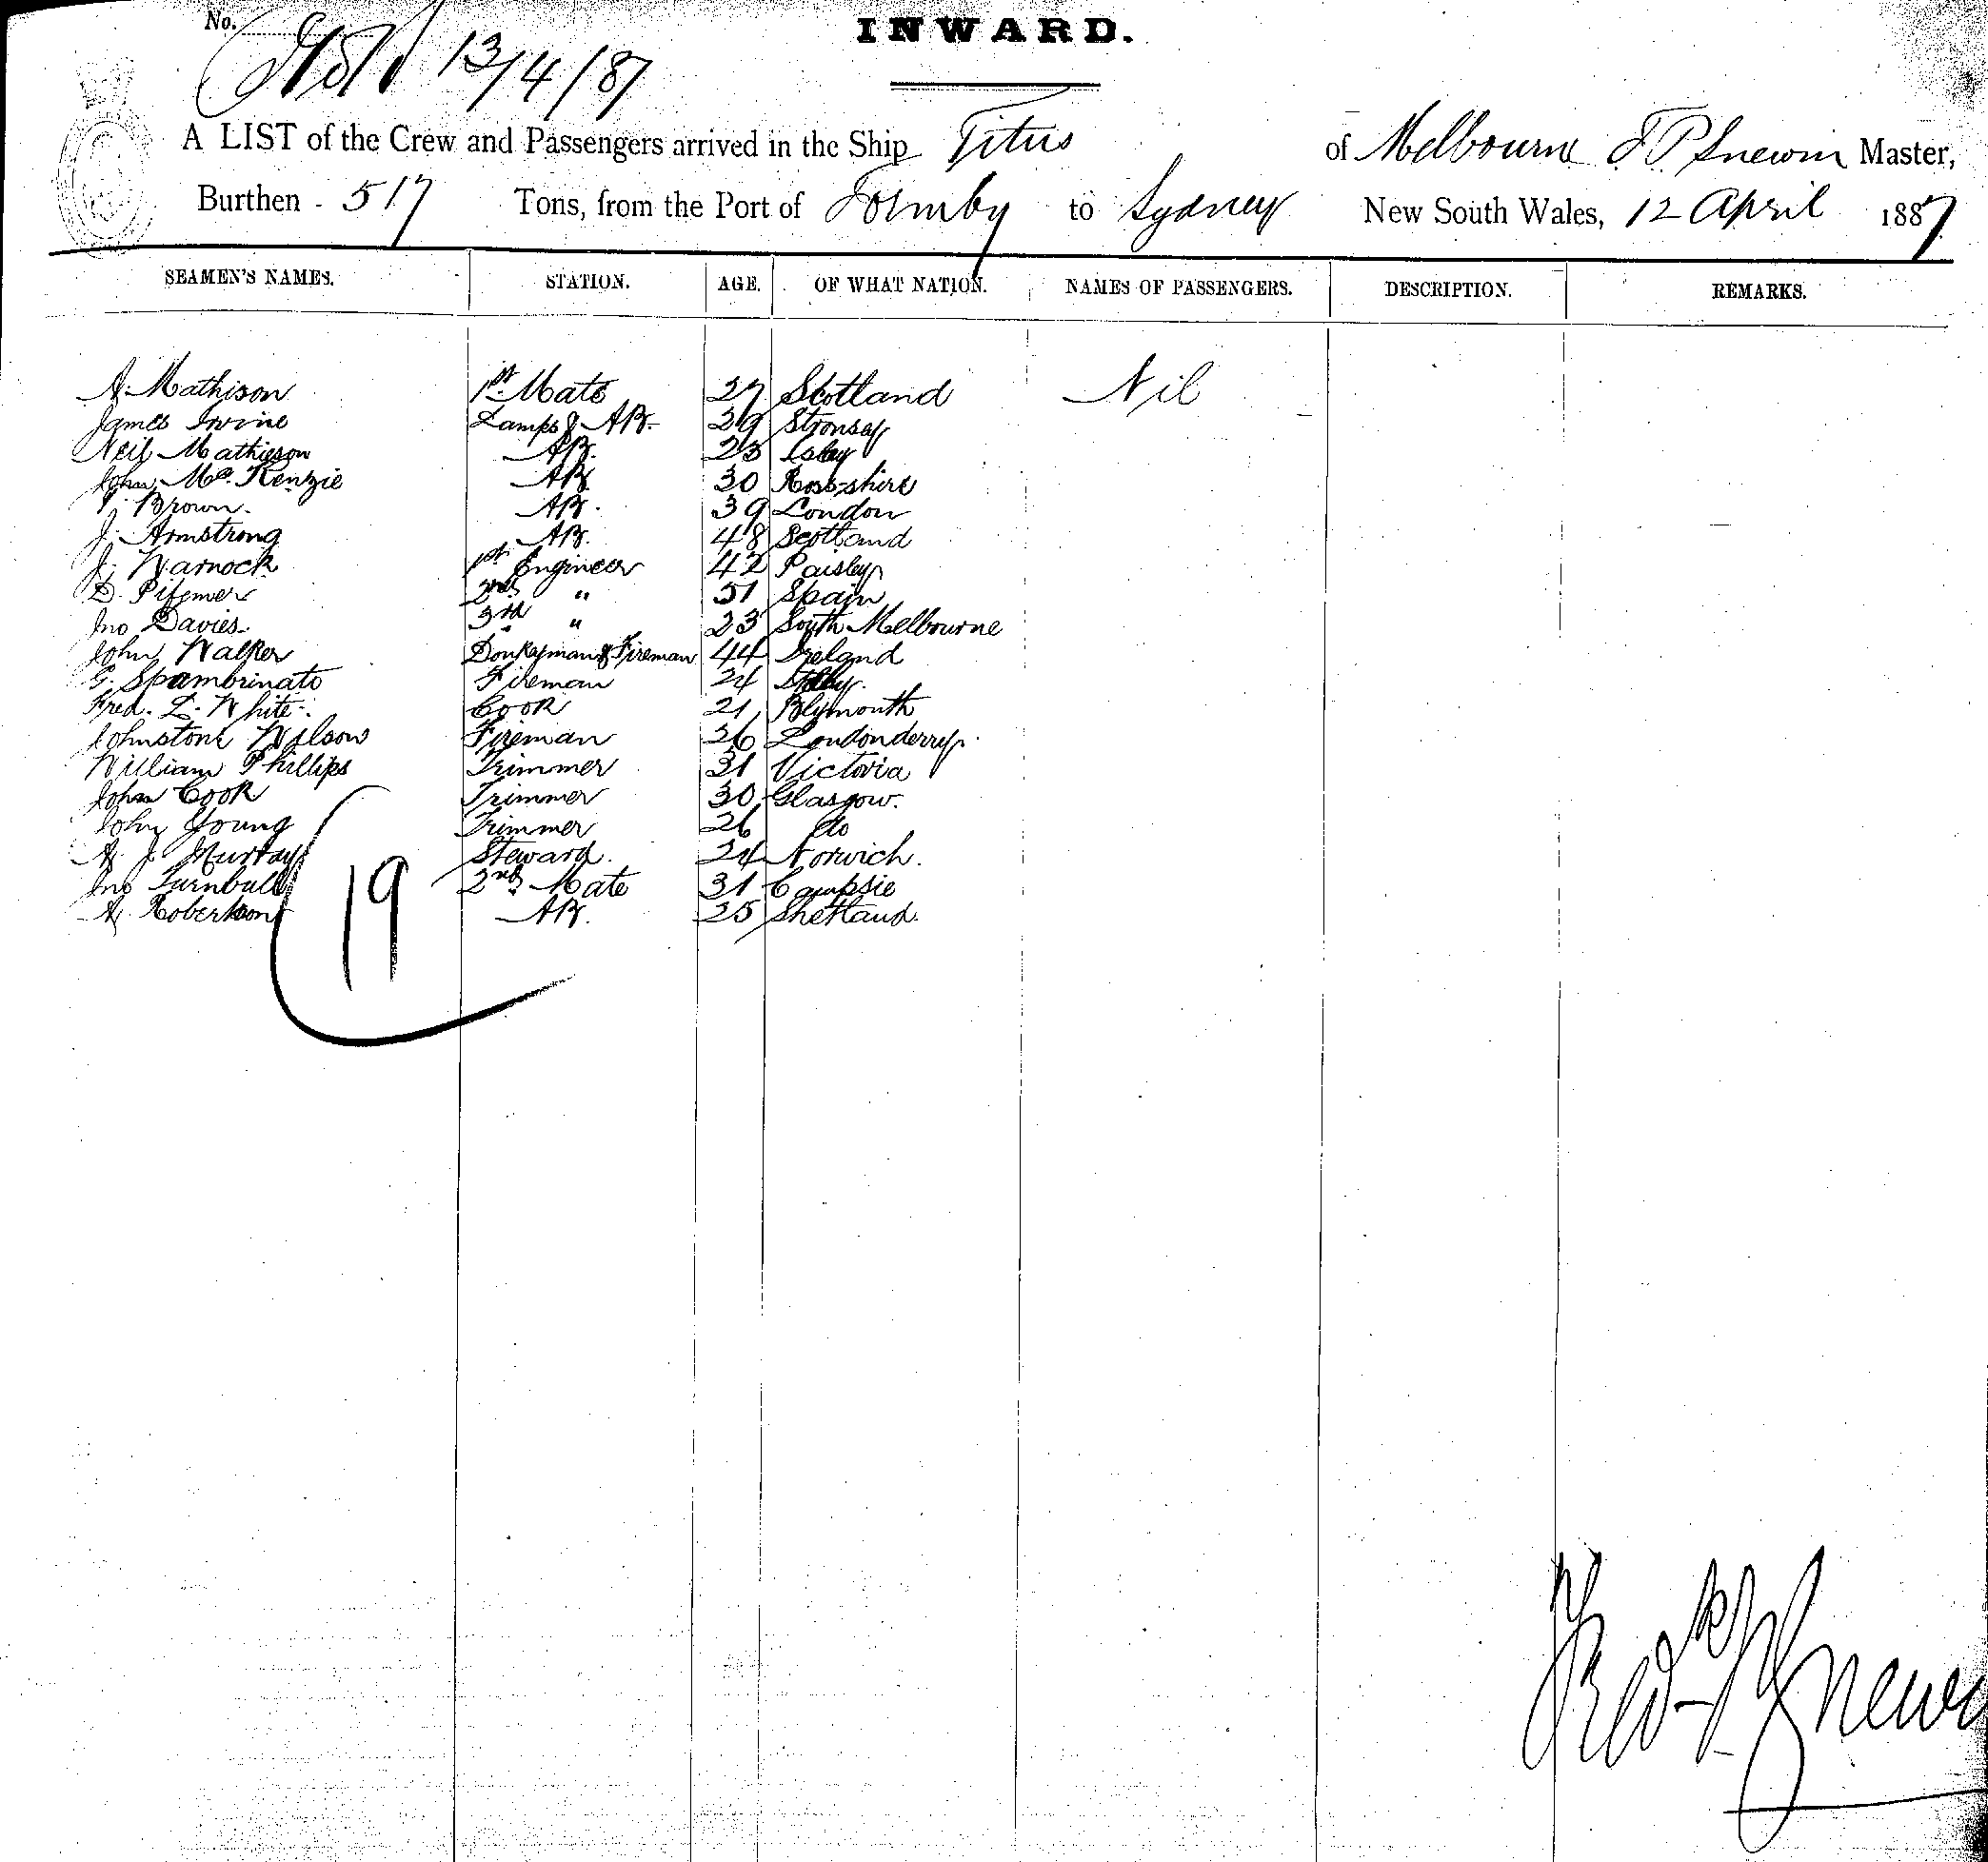 No.
13/4/87
INWARD.
A LIST of the Crew and Passengers arrived in the Ship Titus of Melbourne F P Snewin Master,
Burthen 517 Tons, from the Port of Formby to Sydney New South Wales, 12 April 1887
SEAMEN'S NAMES. STATION. AGE. OF WHAT NATION. NAMES OF PASSENGERS. DESCRIPTION. REMARKS.
A. Mathison 1st Mate 27 Scotland Nil
James Irvine Lamps & AB. 29 Stronsay
Neil Mathieson AB. 23 Islay
John McKenzie AB 30 Ross-shire
Brown. AB. 39 London
J. Armstrong AB. 48 Scotland
J. Warnock 1st Engineer 42 Paisley
D. 2nd " 51 Spain
Jno Davies 3rd " 23 South Melbourne
John Walker Donkeyman & Fireman 44 Ireland
G. Spambrinato Fireman 24 Italy.
Fred. L. White Cook 21 Plymouth
Johnstone Wilson Fireman 26 Londonderry.
William Phillips Trimmer 31 Victoria
John Cook Trimmer 30 Glasgow.
John Young Trimmer 26 do
A. J. Murray Steward. 24 Norwich.
Jno Turnbull 2nd Mate 31 Campsie
A. Robertson AB. 25 Shetland.
19
Fredk P Snewi